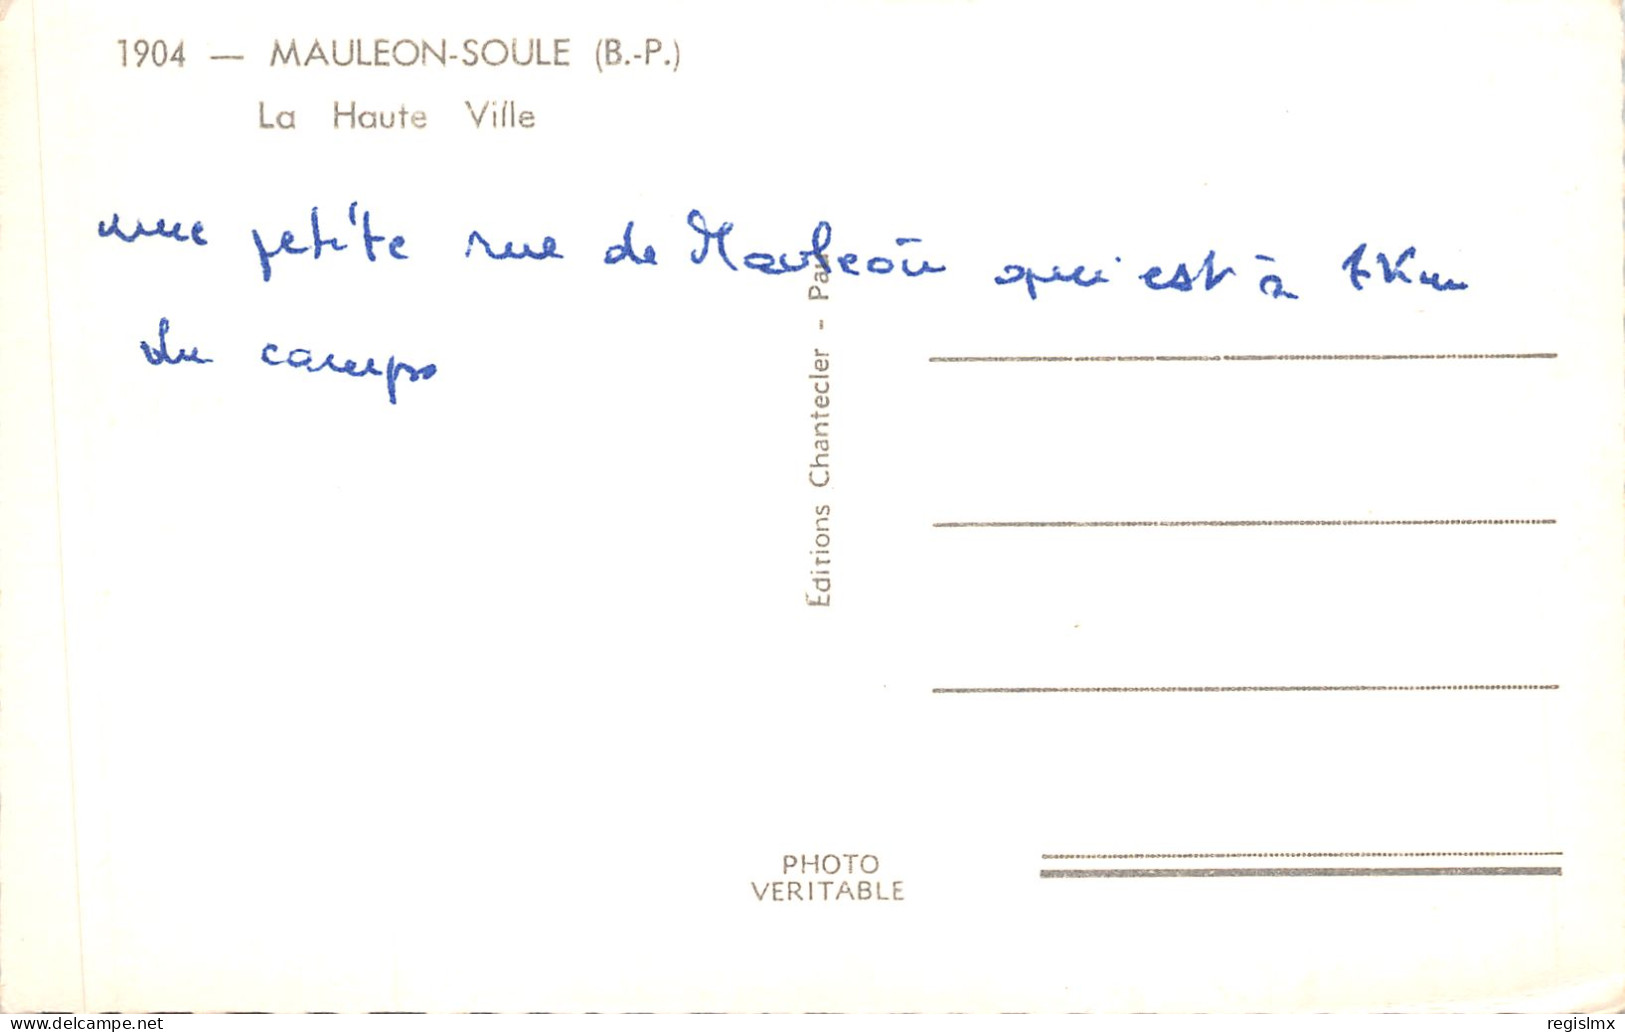 1904 — MAULEON-SOULE (B.-P.)
La Haute Ville
une petite rue de Mauléon qui est à 1 Km
du camps
Éditions Chantecler - Pau
PHOTO
VERITABLE
delcampe.net
regislmx